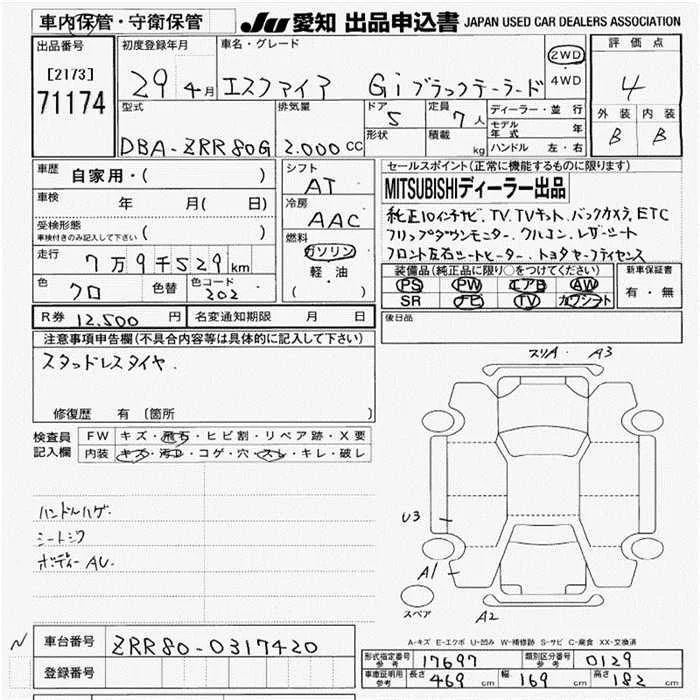 車内保管・守衛保管
JU 愛知 出品申込書 JAPAN USED CAR DEALERS ASSOCIATION
出品番号
[2173]
71174
初度登録年月
29 4月
車名・グレード
エスクァイア Gi ブラックテーラード
2WD
4WD
評価点
4
外装 内装
B B
型式
DBA-ZRR80G
排気量
2.000 CC
ドア
5
形状
定員
7人
積載
kg
ディーラー・並行
モデル年式 年
ハンドル 左・右
車歴
自家用・( )
車検 年 月( 日)
受検形態
車検付きのみ記入して下さい ( )
走行
7万9千529km
色
クロ
色替
色コード
202
シフト
AT
冷房
AAC
燃料
ガソリン
軽・油
( )
セールスポイント(正常に機能するものに限ります)
MITSUBISHIディーラー出品
純正10インチナビ、TV、TVキット、バックカメラ、ETC
フリップダウンモニター、クルコン、レザーシート
フロント左右シートヒーター、トヨタセーフティセンス
装備品(純正品に限り○をつけてください)
PS PW エアB AW
SR ナビ TV カワシート
新車保証書
有・無
後日品
R券 12,500 円
名変通知期限 月 日
注意事項申告欄(不具合内容等は具体的に記入して下さい)
スタッドレスタイヤ.
修復歴 有 〔箇所 〕
検査員
記入欄
FW キズ・飛石・ヒビ割・リペア跡・X要
内装 キズ・汚レ・コゲ・穴・スレ・キレ・破レ
ハンドルハゲ.
シートシワ
ボディーAU.
スリA. A3
U3
A1
スペア
A2
A-キズ E-エクボ U-凹み W-補修跡 S-サビ C-腐食 XX-交換済
N
車台番号 ZRR80-0317420
登録番号
形式指定番号
参考
17697
類別区分番号
参考
0129
車庫証明用
参考
長さ 469 cm 幅 169 cm 高さ 182 cm